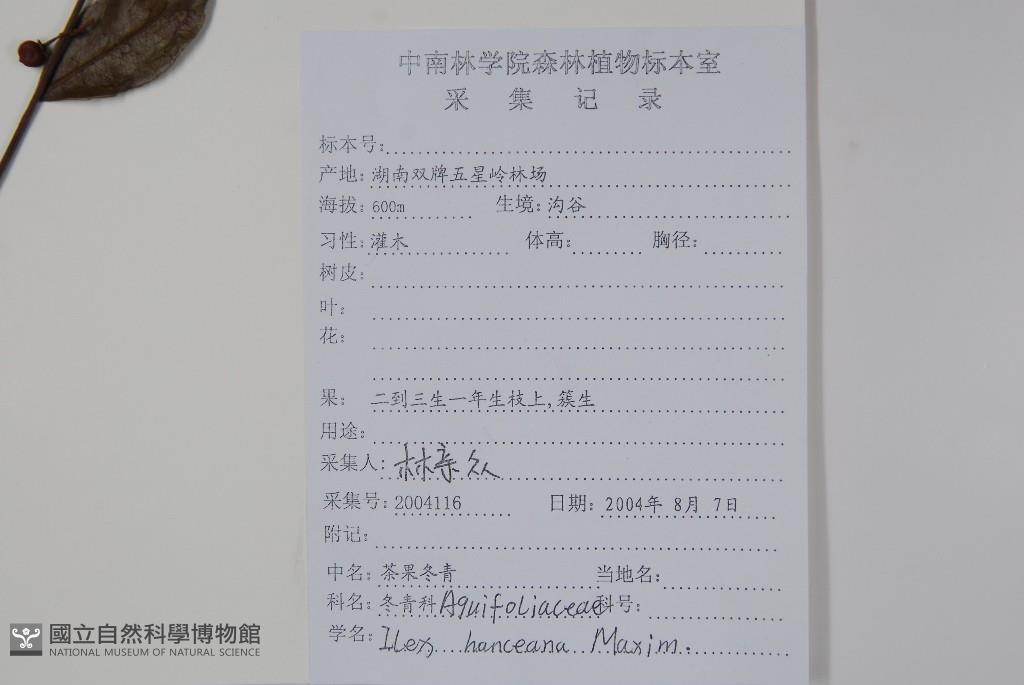 中南林学院森林植物标本室
采集记录
标本号:
产地: 湖南双牌五星岭林场
海拔: 600m 生境: 沟谷
习性: 灌木 体高: 胸径:
树皮:
叶:
花:
果: 二到三生一年生枝上,簇生
用途:
采集人: 林亲众
采集号: 2004116 日期: 2004年 8月 7日
附记:
中名: 茶果冬青 当地名:
科名: 冬青科 Aquifoliaceae 科号:
学名: Ilex hanceana Maxim.
國立自然科學博物館
NATIONAL MUSEUM OF NATURAL SCIENCE